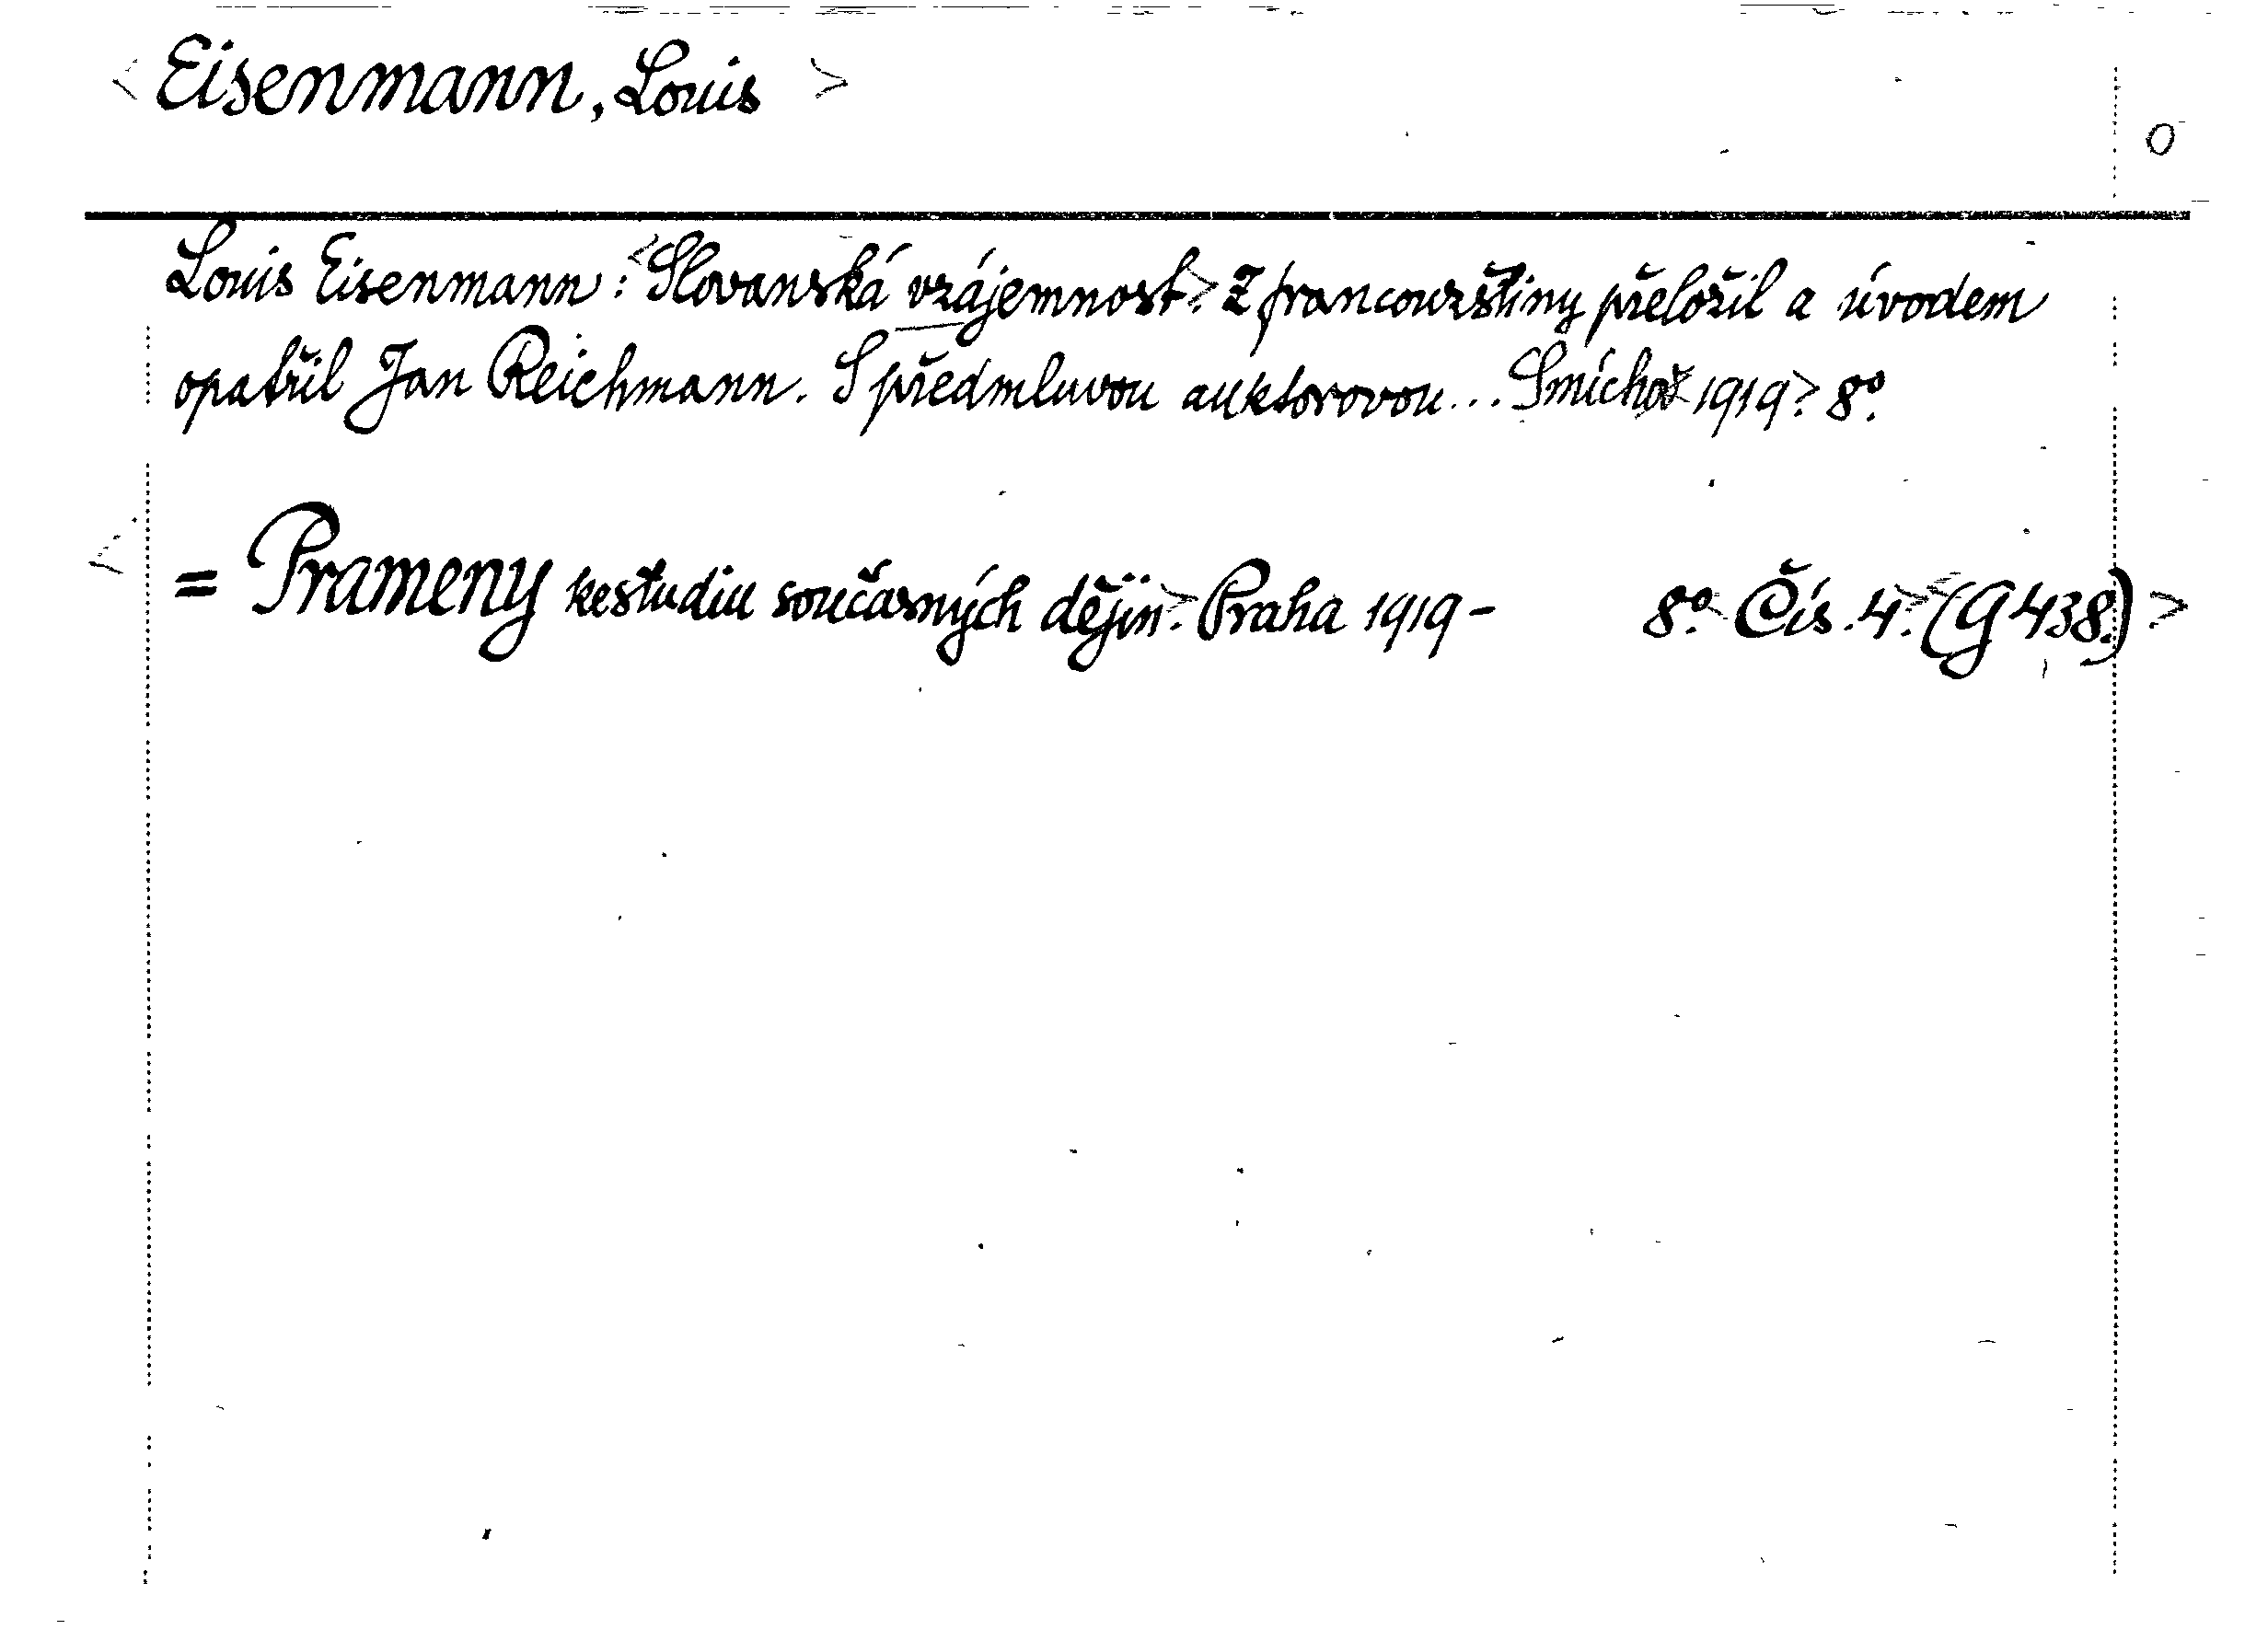 < Eisenmann, Louis >
O
Louis Eisenmann: <Slovanská vzájemnost.> Z francouzštiny přeložil a úvodem
opatřil Jan Reichmann. S předmluvou auktorovou... Smíchov 1919.> 8º.
< = Prameny ke studiu současných dějin.> Praha 1919- 8º. <Čís. 4.> (G 438.) >